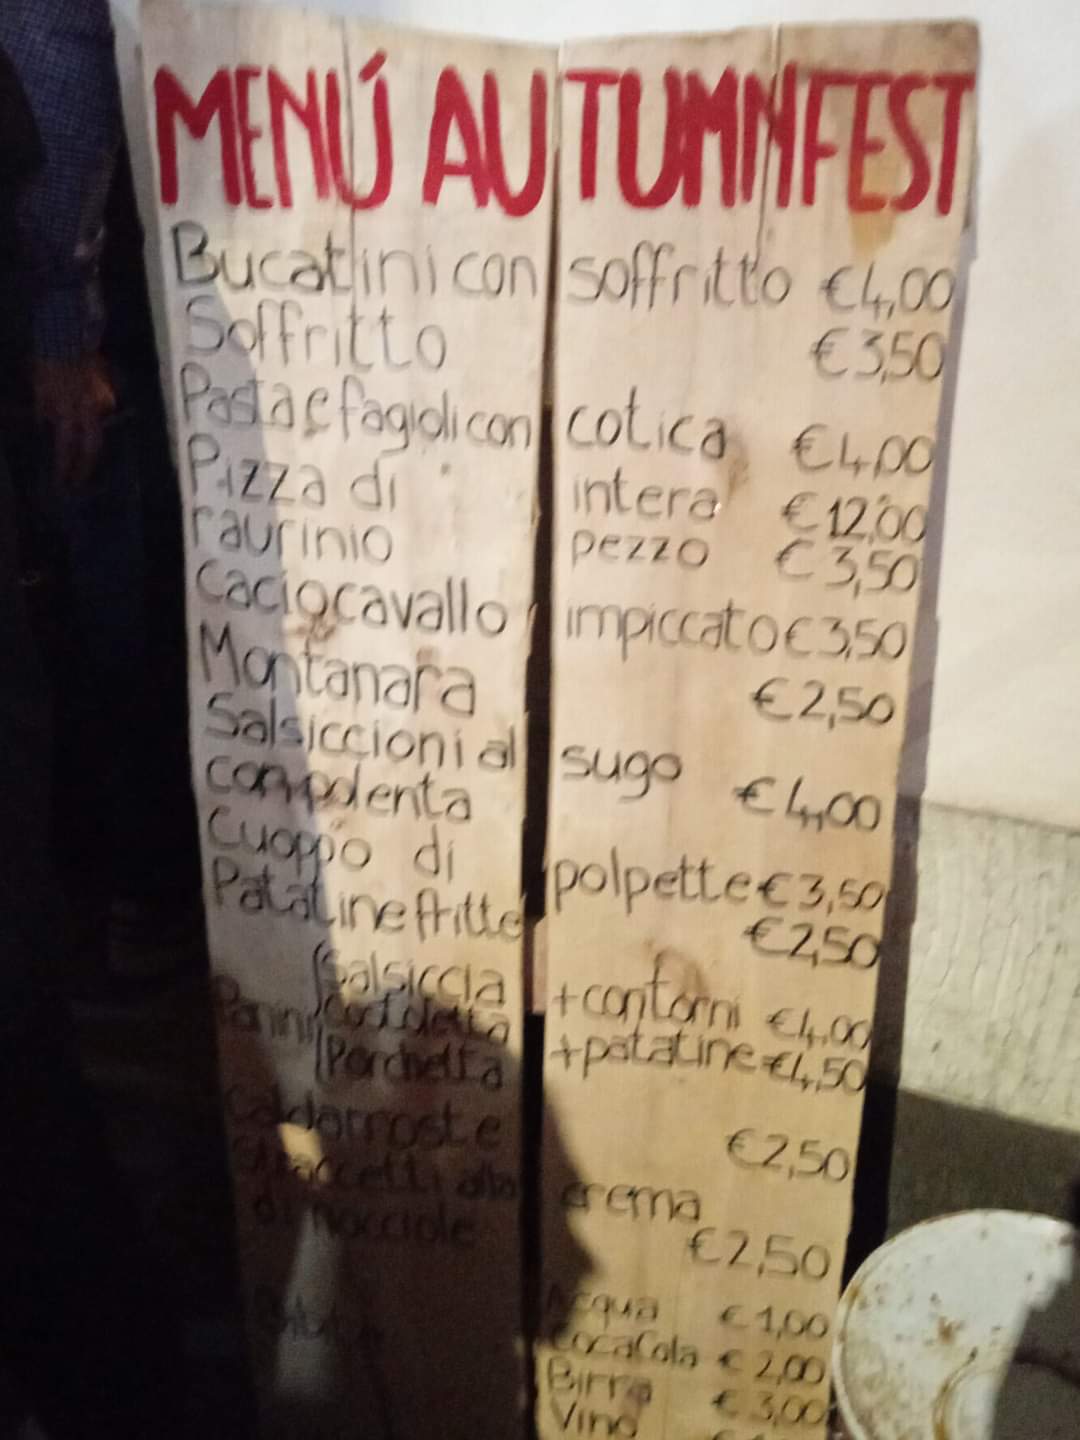 MENÚ AUTUMNFEST
Bucatini con soffritto €4,00
Soffritto €3,50
Pasta e fagioli con cotica €4,00
Pizza di intera €12,00
raurinio pezzo €3,50
Caciocavallo impiccato €3,50
Montanara €2,50
Salsiccioni al sugo
con polenta €4,00
Cuoppo di polpette €3,50
Patatine fritte €2,50
Salsiccia +contorni €4,00
Panini Cotoletta
Porchetta +patatine €4,50
Caldarroste €2,50
Straccetti alla crema
di nocciole €2,50
Acqua €1,00
CocaCola €2,00
Birra €3,00
Vino